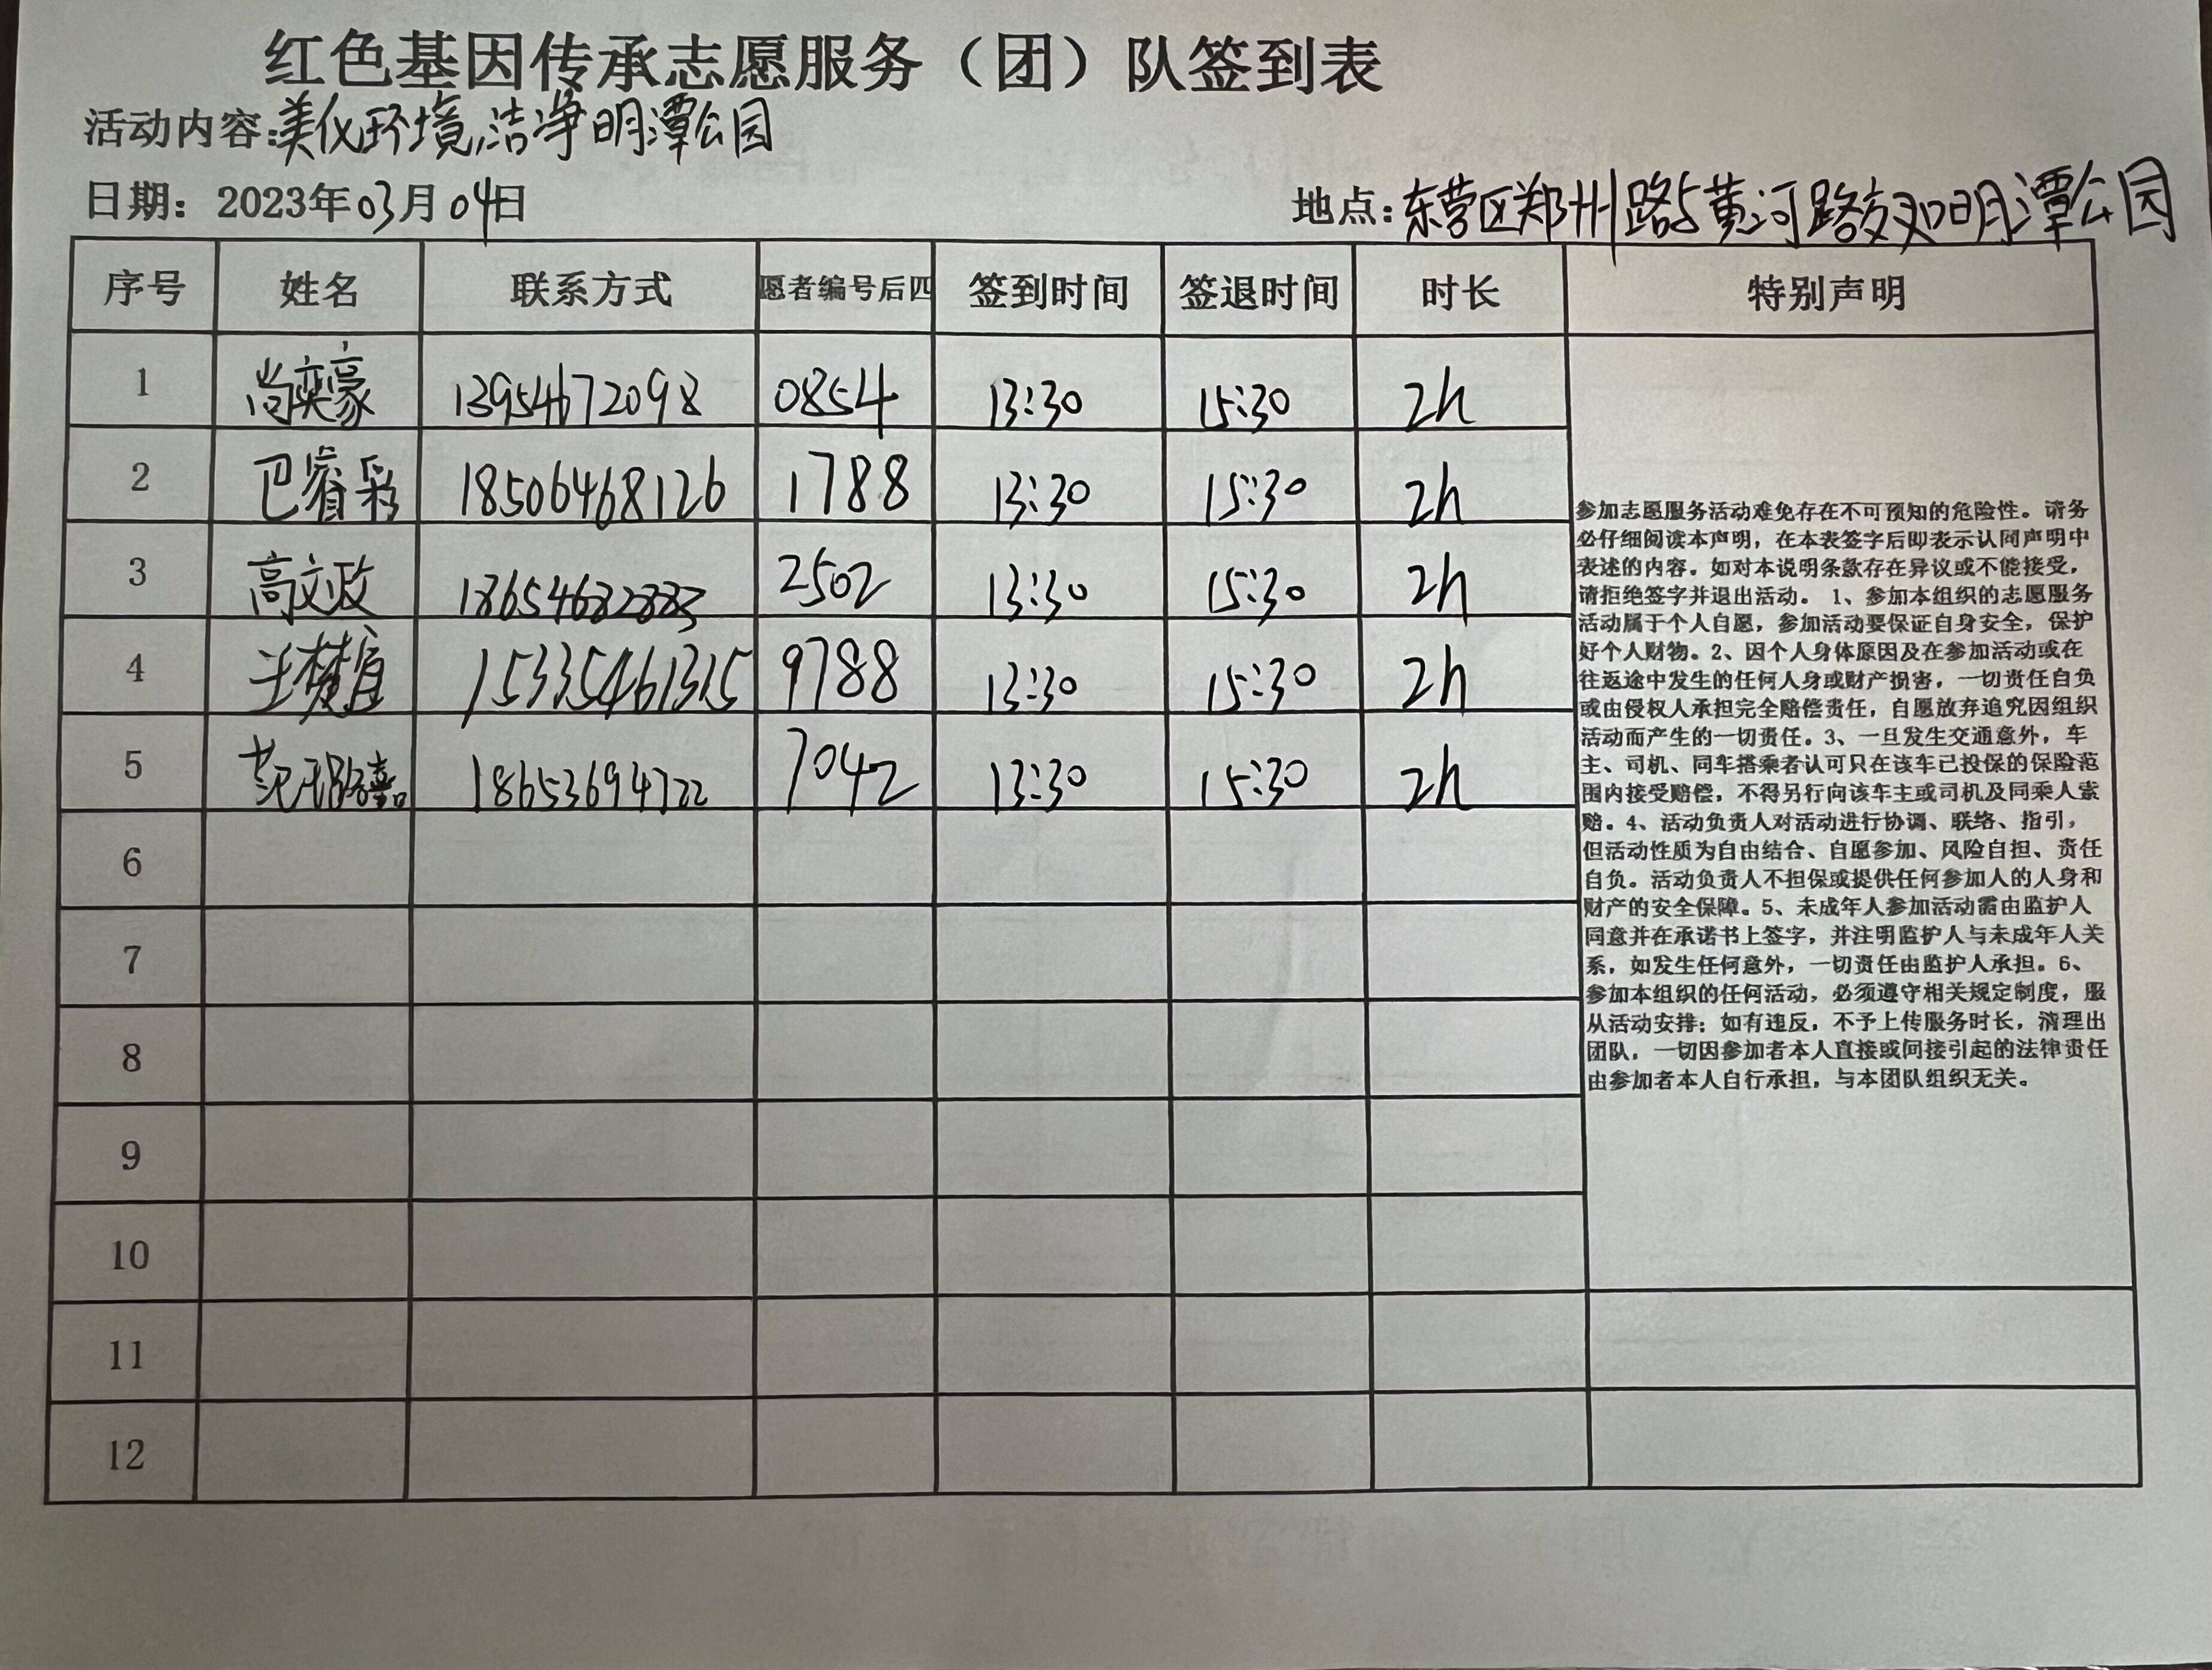 红色基因传承志愿服务（团）队签到表
活动内容:美化环境,洁净明潭公园
日期：2023年03月04日 地点:东营区郑州路与黄河路交叉口明潭公园
序号 姓名 联系方式 愿者编号后四 签到时间 签退时间 时长 特别声明
1 尚奕豪 13954672098 0854 13:30 15:30 2h
2 巴睿彩 18506468126 1788 13:30 15:30 2h
3 高文政 18654682883 2502 13:30 15:30 2h
4 王梦宜 15335461315 9788 13:30 15:30 2h
5 18653694722 7042 13:30 15:30 2h
6
7
8
9
10
11
12
参加志愿服务活动难免存在不可预知的危险性。请务
必仔细阅读本声明，在本表签字后即表示认同声明中
表述的内容。如对本说明条款存在异议或不能接受，
请拒绝签字并退出活动。 1、参加本组织的志愿服务
活动属于个人自愿，参加活动要保证自身安全，保护
好个人财物。2、因个人身体原因及在参加活动或在
往返途中发生的任何人身或财产损害，一切责任自负
或由侵权人承担完全赔偿责任，自愿放弃追究因组织
活动而产生的一切责任。3、一旦发生交通意外，车
主、司机、同车搭乘者认可只在该车已投保的保险范
围内接受赔偿，不得另行向该车主或司机及同乘人索
赔。4、活动负责人对活动进行协调、联络、指引，
但活动性质为自由结合、自愿参加、风险自担、责任
自负。活动负责人不担保或提供任何参加人的人身和
财产的安全保障。5、未成年人参加活动需由监护人
同意并在承诺书上签字，并注明监护人与未成年人关
系，如发生任何意外，一切责任由监护人承担。6、
参加本组织的任何活动，必须遵守相关规定制度，服
从活动安排；如有违反，不予上传服务时长，清理出
团队，一切因参加者本人直接或间接引起的法律责任
由参加者本人自行承担，与本团队组织无关。